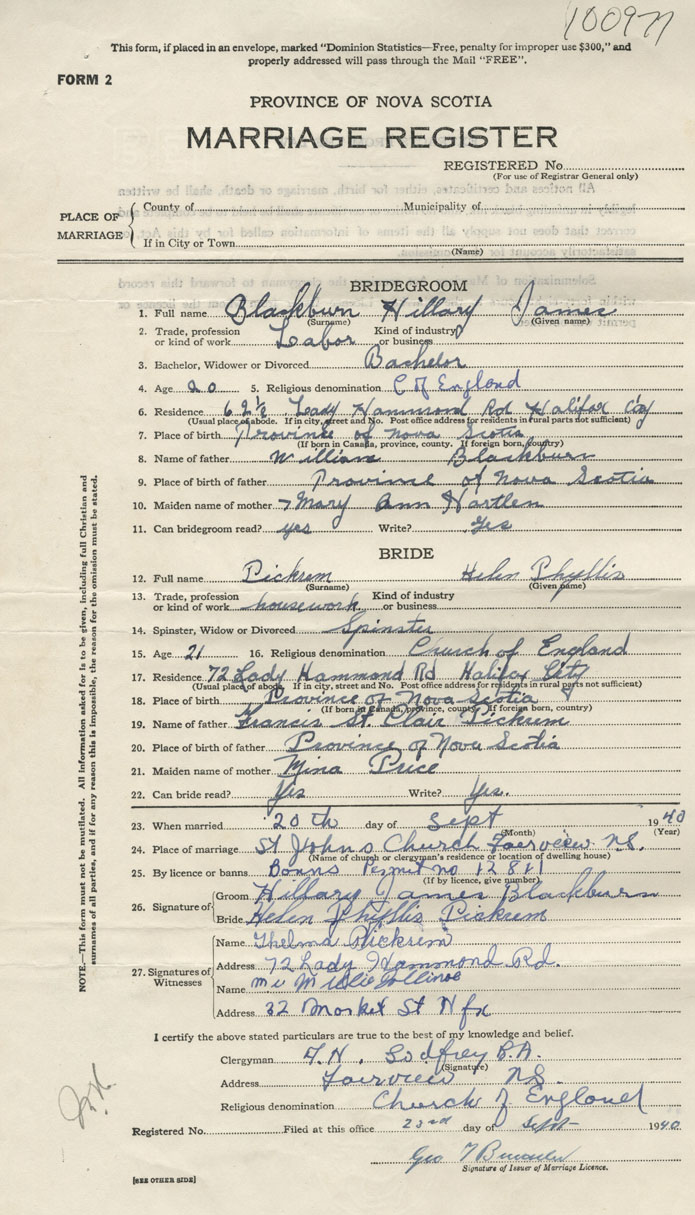 10097
This form, if placed in an envelope, marked "Dominion Statistics—Free, penalty for improper use $300," and
properly addressed will pass through the Mail "FREE".
FORM 2
PROVINCE OF NOVA SCOTIA
MARRIAGE REGISTER
REGISTERED No.
(For use of Registrar General only)
PLACE OF MARRIAGE
County of Municipality of
If in City or Town
(Name)
BRIDEGROOM
1. Full name Blackburn Hillary James
(Surname) (Given name)
2. Trade, profession or kind of work Labor Kind of industry or business
3. Bachelor, Widower or Divorced Bachelor
4. Age 20 5. Religious denomination C of England
6. Residence 62½ Lady Hammond Rd Halifax City
(Usual place of abode. If in city, street and No. Post office address for residents in rural parts not sufficient)
7. Place of birth Province of Nova Scotia
(If born in Canada, province, county. If foreign born, country)
8. Name of father William Blackburn
9. Place of birth of father Province of Nova Scotia
10. Maiden name of mother Mary Ann Hartlen
11. Can bridegroom read? yes Write? Yes
BRIDE
12. Full name Pickrem Helen Phyllis
(Surname) (Given name)
13. Trade, profession or kind of work housework Kind of industry or business
14. Spinster, Widow or Divorced Spinster
15. Age 21 16. Religious denomination Church of England
17. Residence 72 Lady Hammond Rd Halifax City
(Usual place of abode. If in city, street and No. Post office address for residents in rural parts not sufficient)
18. Place of birth Province of Nova Scotia
(If born in Canada, province, county. If foreign born, country)
19. Name of father Francis St. Clair Pickrem
20. Place of birth of father Province of Nova Scotia
21. Maiden name of mother Mina Price
22. Can bride read? Yes Write? Yes.
23. When married 20th day of Sept 1940
(Month) (Year)
24. Place of marriage St Johns Church Fairview N.S.
(Name of church or clergyman's residence or location of dwelling house)
25. By licence or banns Banns Permit no 12811
(If by licence, give number)
26. Signature of
Groom Hillary James Blackburn
Bride Helen Phyllis Pickrem
27. Signatures of Witnesses
Name Thelma Pickrem
Address 72 Lady Hammond Rd.
Name
Address 32 Market St Hfx
I certify the above stated particulars are true to the best of my knowledge and belief.
Clergyman Godfrey B.A.
(Signature)
Address Fairview N.S.
Religious denomination Church of England
Registered No. Filed at this office 23rd day of Sept 1940
Geo T
Signature of Issuer of Marriage Licence.
[SEE OTHER SIDE]
NOTE.—This form must not be mutilated. All information asked for is to be given, including full Christian and
surnames of all parties, and if for any reason this is impossible, the reason for the omission must be stated.